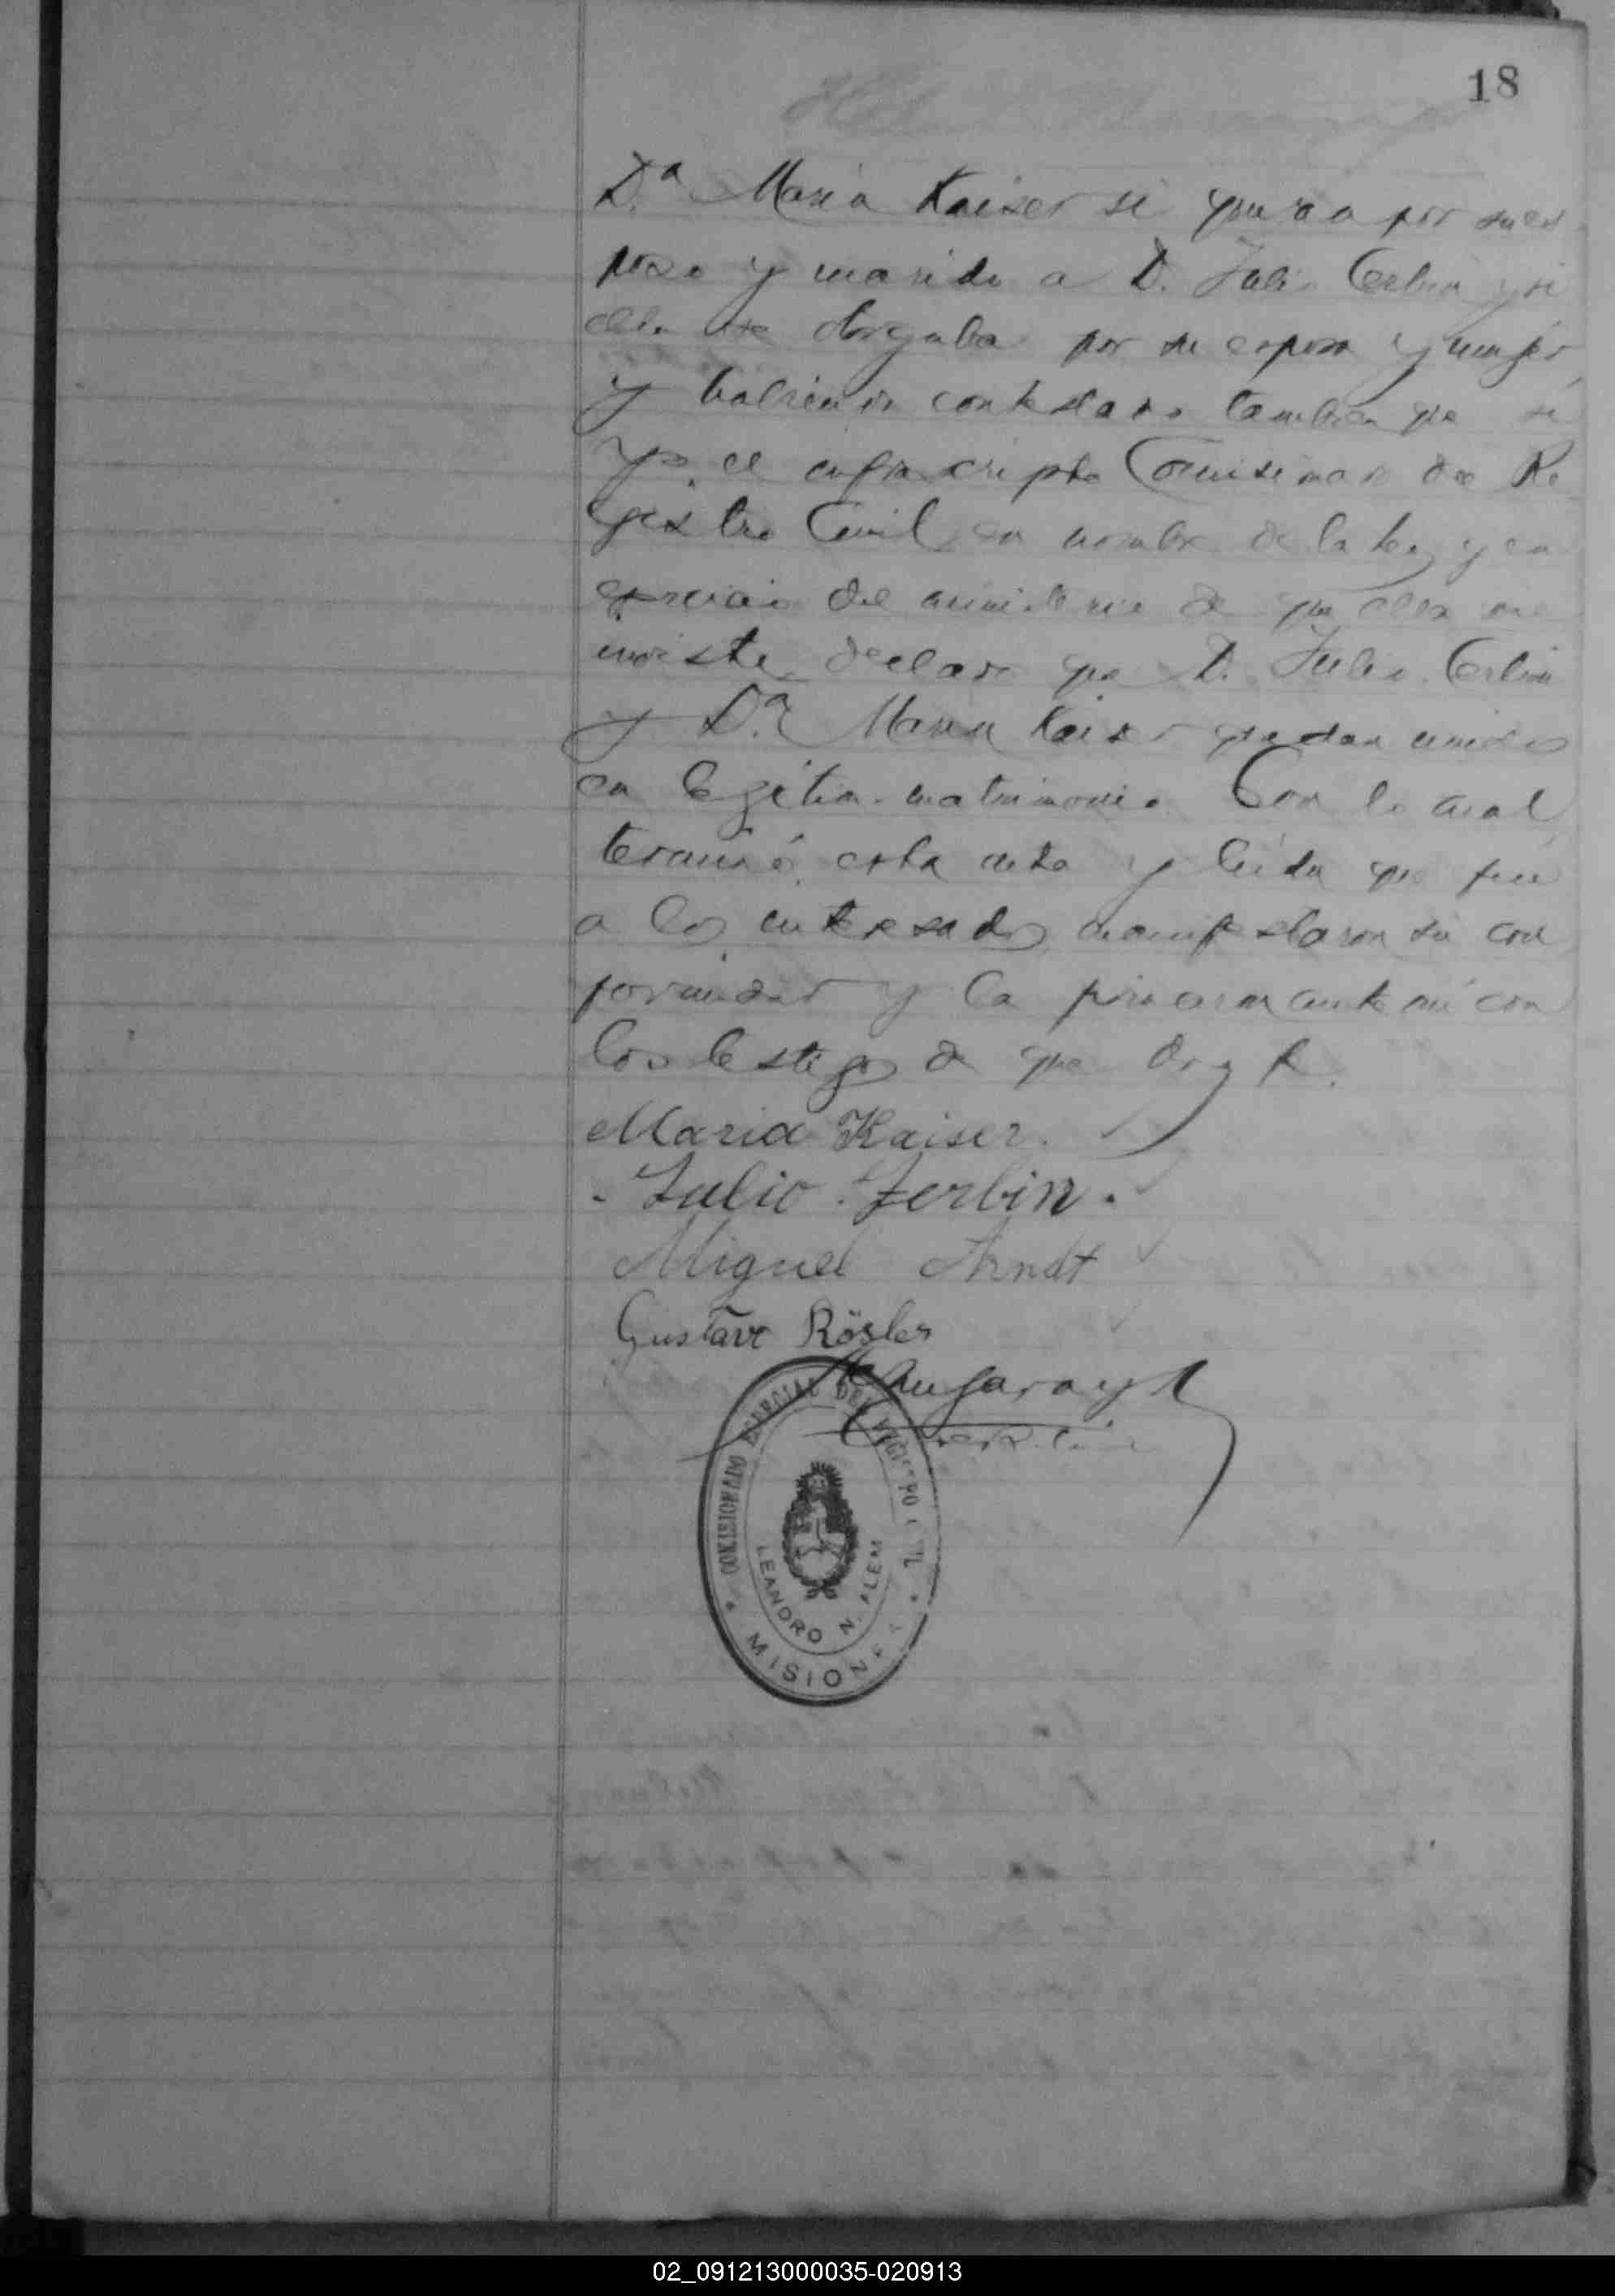 18
D.ª Maria Kaiser si queria por su es
poso y marido a D. Julio Cerbin y si
ella se otorgaba por su esposa y mujer
y habiendo contestado tambien que si
yo el infrascripto Comisionado del Re
gistro Civil en nombre de la ley y en
ejercicio del ministerio de que ella me
inviste declaro que D. Julio Cerbin
y D.ª Maria Kaiser quedan unidos
en legitimo matrimonio. Con lo cual
terminó esta acta y leida que fué
a los interesados manifestaron su con
formidad y la firmaron ante mi con
los testigos de que doy fé.
Maria Kaiser.
Julio Zerbin.
Miguel Arndt
Gustavo Rösler
COMISIONADO ESPECIAL DEL REGISTRO CIVIL
LEANDRO N. ALEM
* MISIONES *
02_091213000035-020913